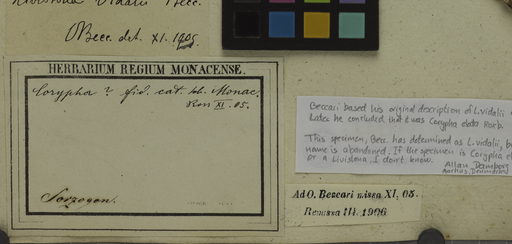 Livistona Vidalii Becc.
OBecc. det. XI. 1905.
HERBARIUM REGIUM MONACENSE.
Corypha ? fid. cat. hb. Monac.
XI. 05.
Sorzogon.
Beccari based his original description of L. vidalii
Later he concluded that it was Corypha elata Roxb.
This specimen, Becc. has determined as L. vidalii, b
name is abandoned. If the specimen is Corypha el
or a Livistona, I don't know.
Allan
Aarhus, Denmark
Ad O. Beccari missa XI, 05.
Remissa III. 1906